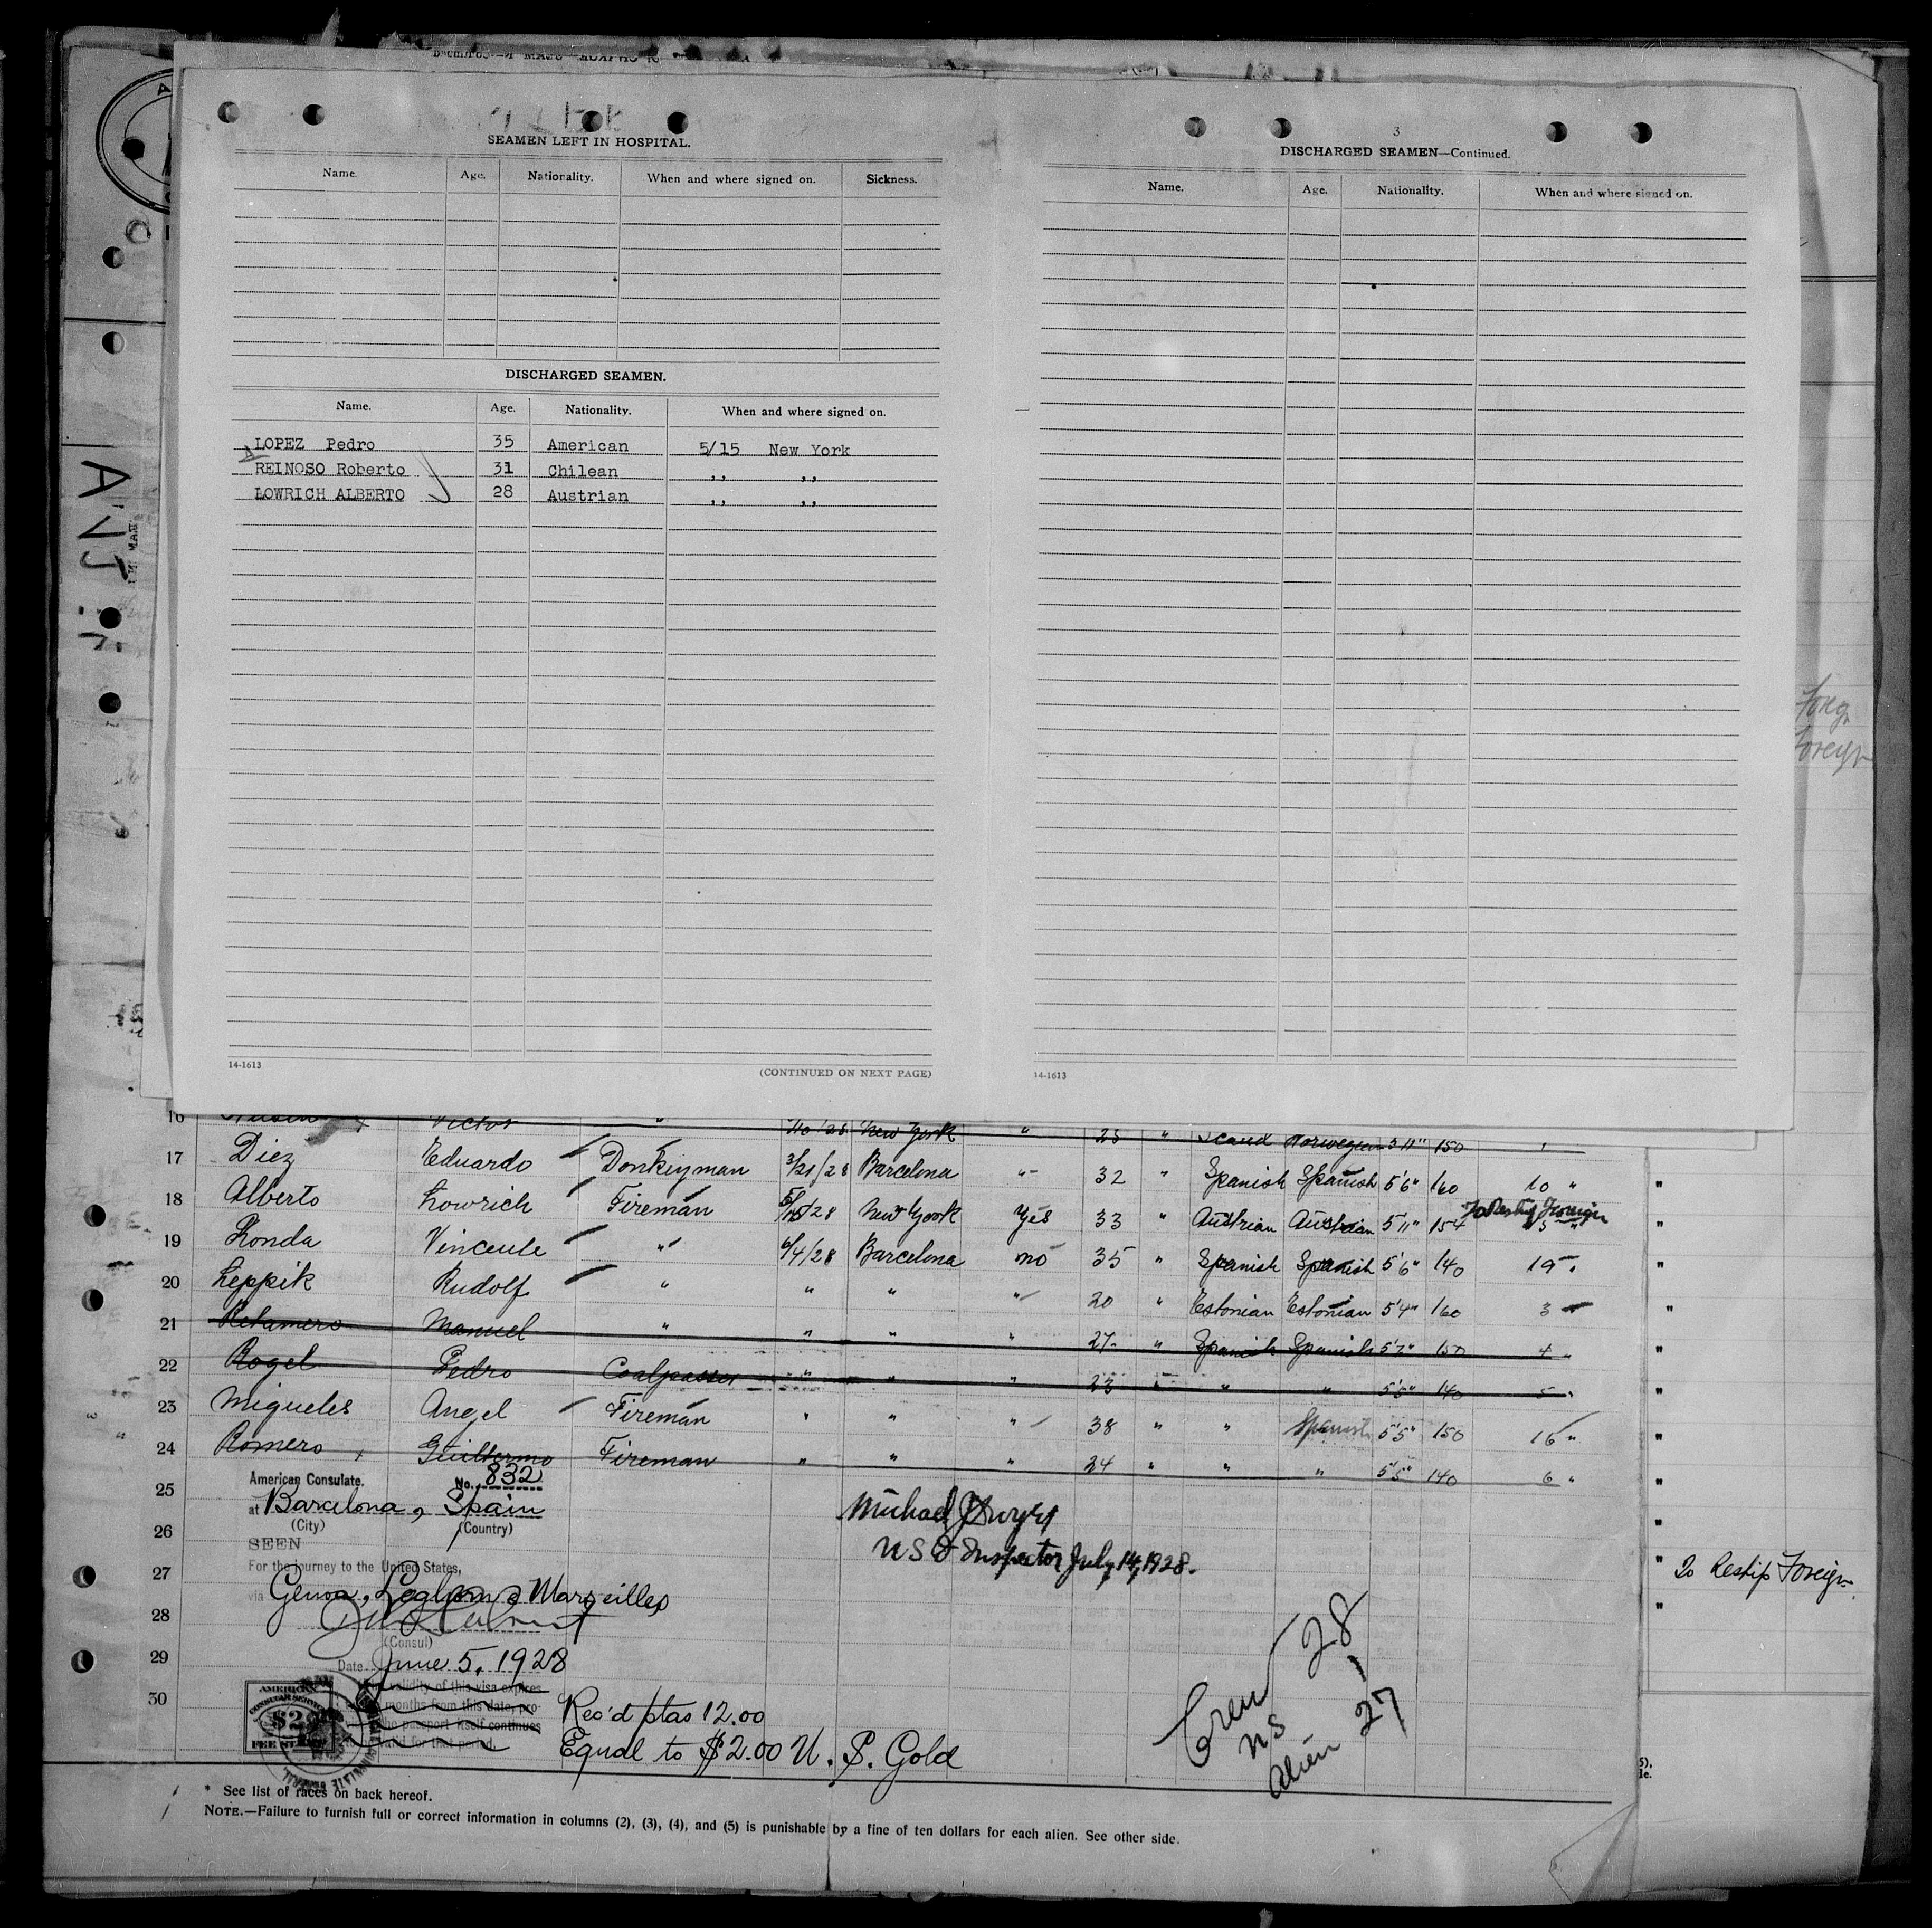 SEAMEN LEFT IN HOSPITAL.
Name. Age. Nationality. When and where signed on. Sickness.
DISCHARGED SEAMEN.
Name. Age. Nationality. When and where signed on.
LOPEZ Pedro 35 American 5/15 New York
REINOSO Roberto 31 Chilean ,, ,,
LOWRICH ALBERTO 28 Austrian ,, ,,
14-1613
(CONTINUED ON NEXT PAGE)
3
DISCHARGED SEAMEN—Continued.
Name. Age. Nationality. When and where signed on.
14-1613
Foreign
16 Victor " New York " 25 " Scand Norwegian 5'11" 150
17 Diez Eduardo Donkeyman 3/21/28 Barcelona " 32 " Spanish Spanish 5'6" 160 10 "
18 Alberto Lowrich Fireman 5/15/28 New York Yes 33 " Austrian Austrian 5'11" 154 To Reship Foreign 15 "
19 Londa Vinceule " 6/4/28 Barcelona no 35 " Spanish Spanish 5'6" 140 19 "
20 Leppik Rudolf " " " " 20 " Estonian Estonian 5'4" 160 3
21 Retamero Manuel " " " " 27 " Spanish Spanish 5'7" 150 4 "
22 Rogel Pedro Coalpasser " " " 23 " " " 5'5" 140 5 "
23 Migueles Angel Fireman " " " 38 " " Spanish 5'5" 150 16 "
24 Romero Guillermo Fireman " " " 24 " " " 5'5" 140 6 "
25
26
27
28
29
30
American Consulate. No. 832
at Barcelona, Spain
(City) (Country)
SEEN
For the journey to the United States,
via Genoa, Leghorn & Marseilles
(Consul)
Date June 5, 1928
The validity of this visa expires
months from this date, pro-
passport itself continues
valid for that period.
AMERICAN
CONSULAR SERVICE
$2
FEE STAMP
Rec'd ptas 12.00
Equal to $2.00 U. S. Gold
Michael J Dwyer
U S I Inspector July 14, 1928.
Crew 28
US 1
alien 27
To Reship Foreign
* See list of races on back hereof.
NOTE.—Failure to furnish full or correct information in columns (2), (3), (4), and (5) is punishable by a fine of ten dollars for each alien. See other side.